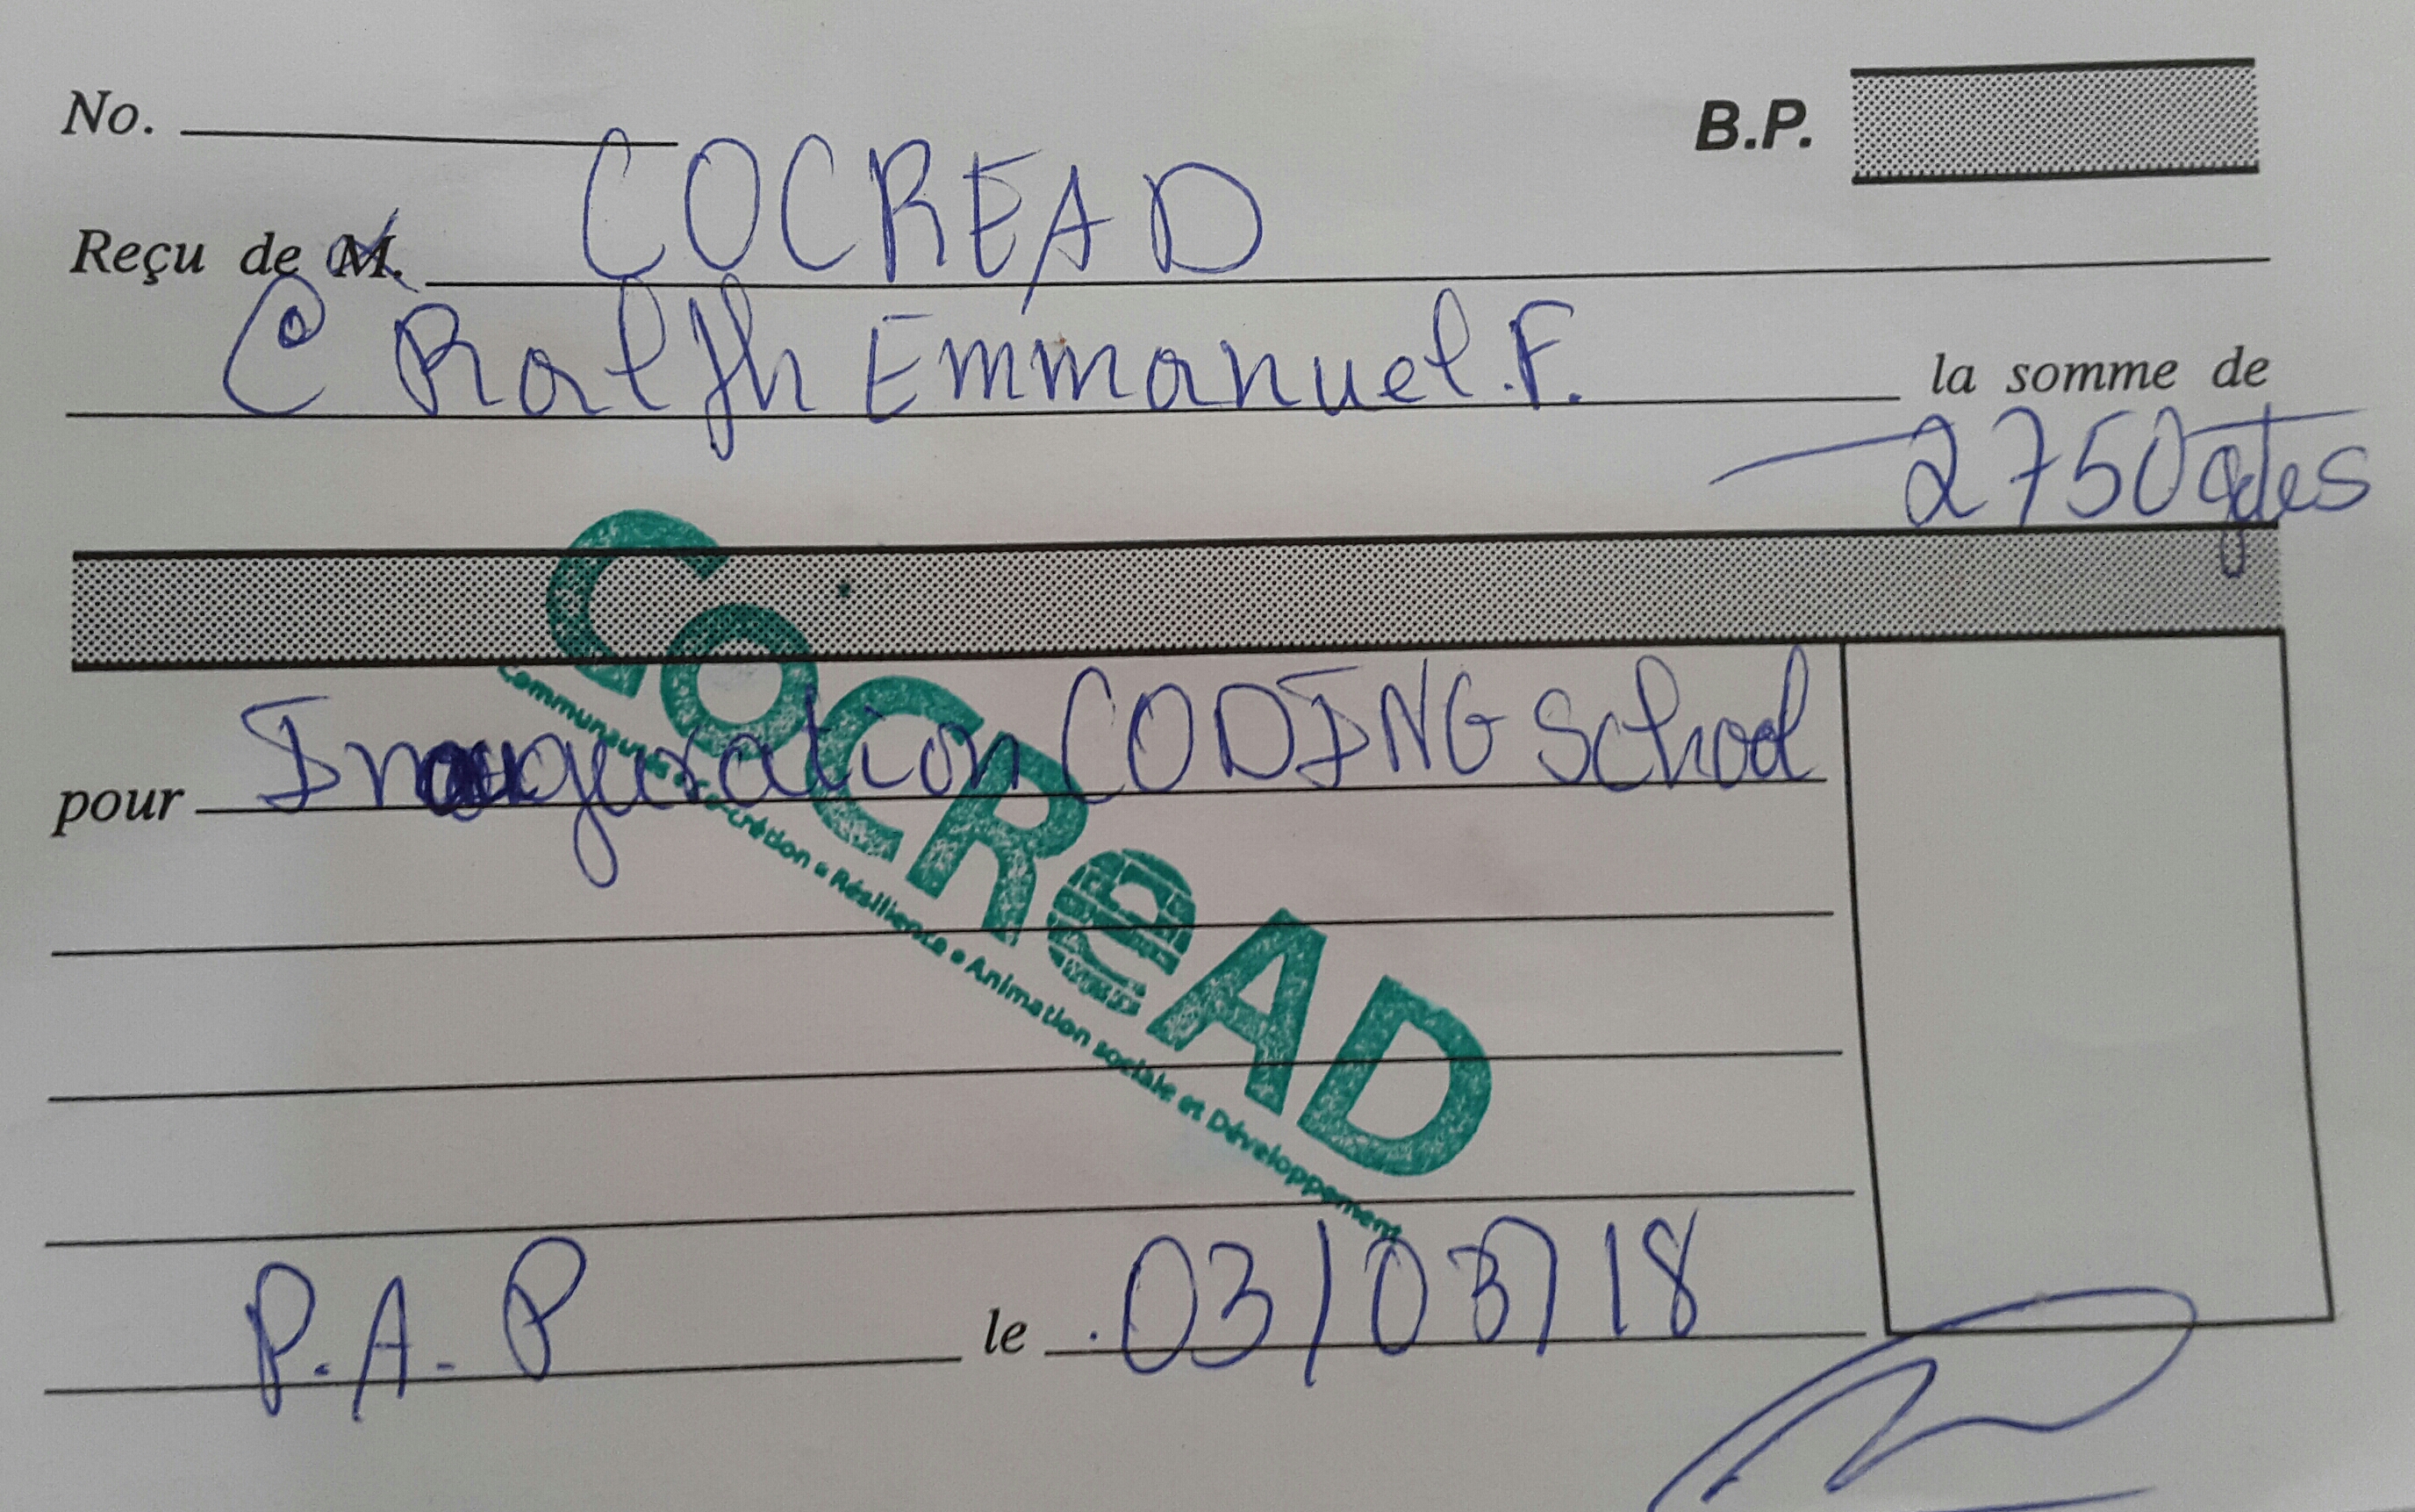 No.
B.P.
Reçu de M. COCREAD
C Ralph Emmanuel.F. la somme de
2750 gdes
pour Inauguration CODING School
CoCReAD
Communauté • Co-crétion • Résilience • Animation sociale et Développement
P.A.P le 03/03/18